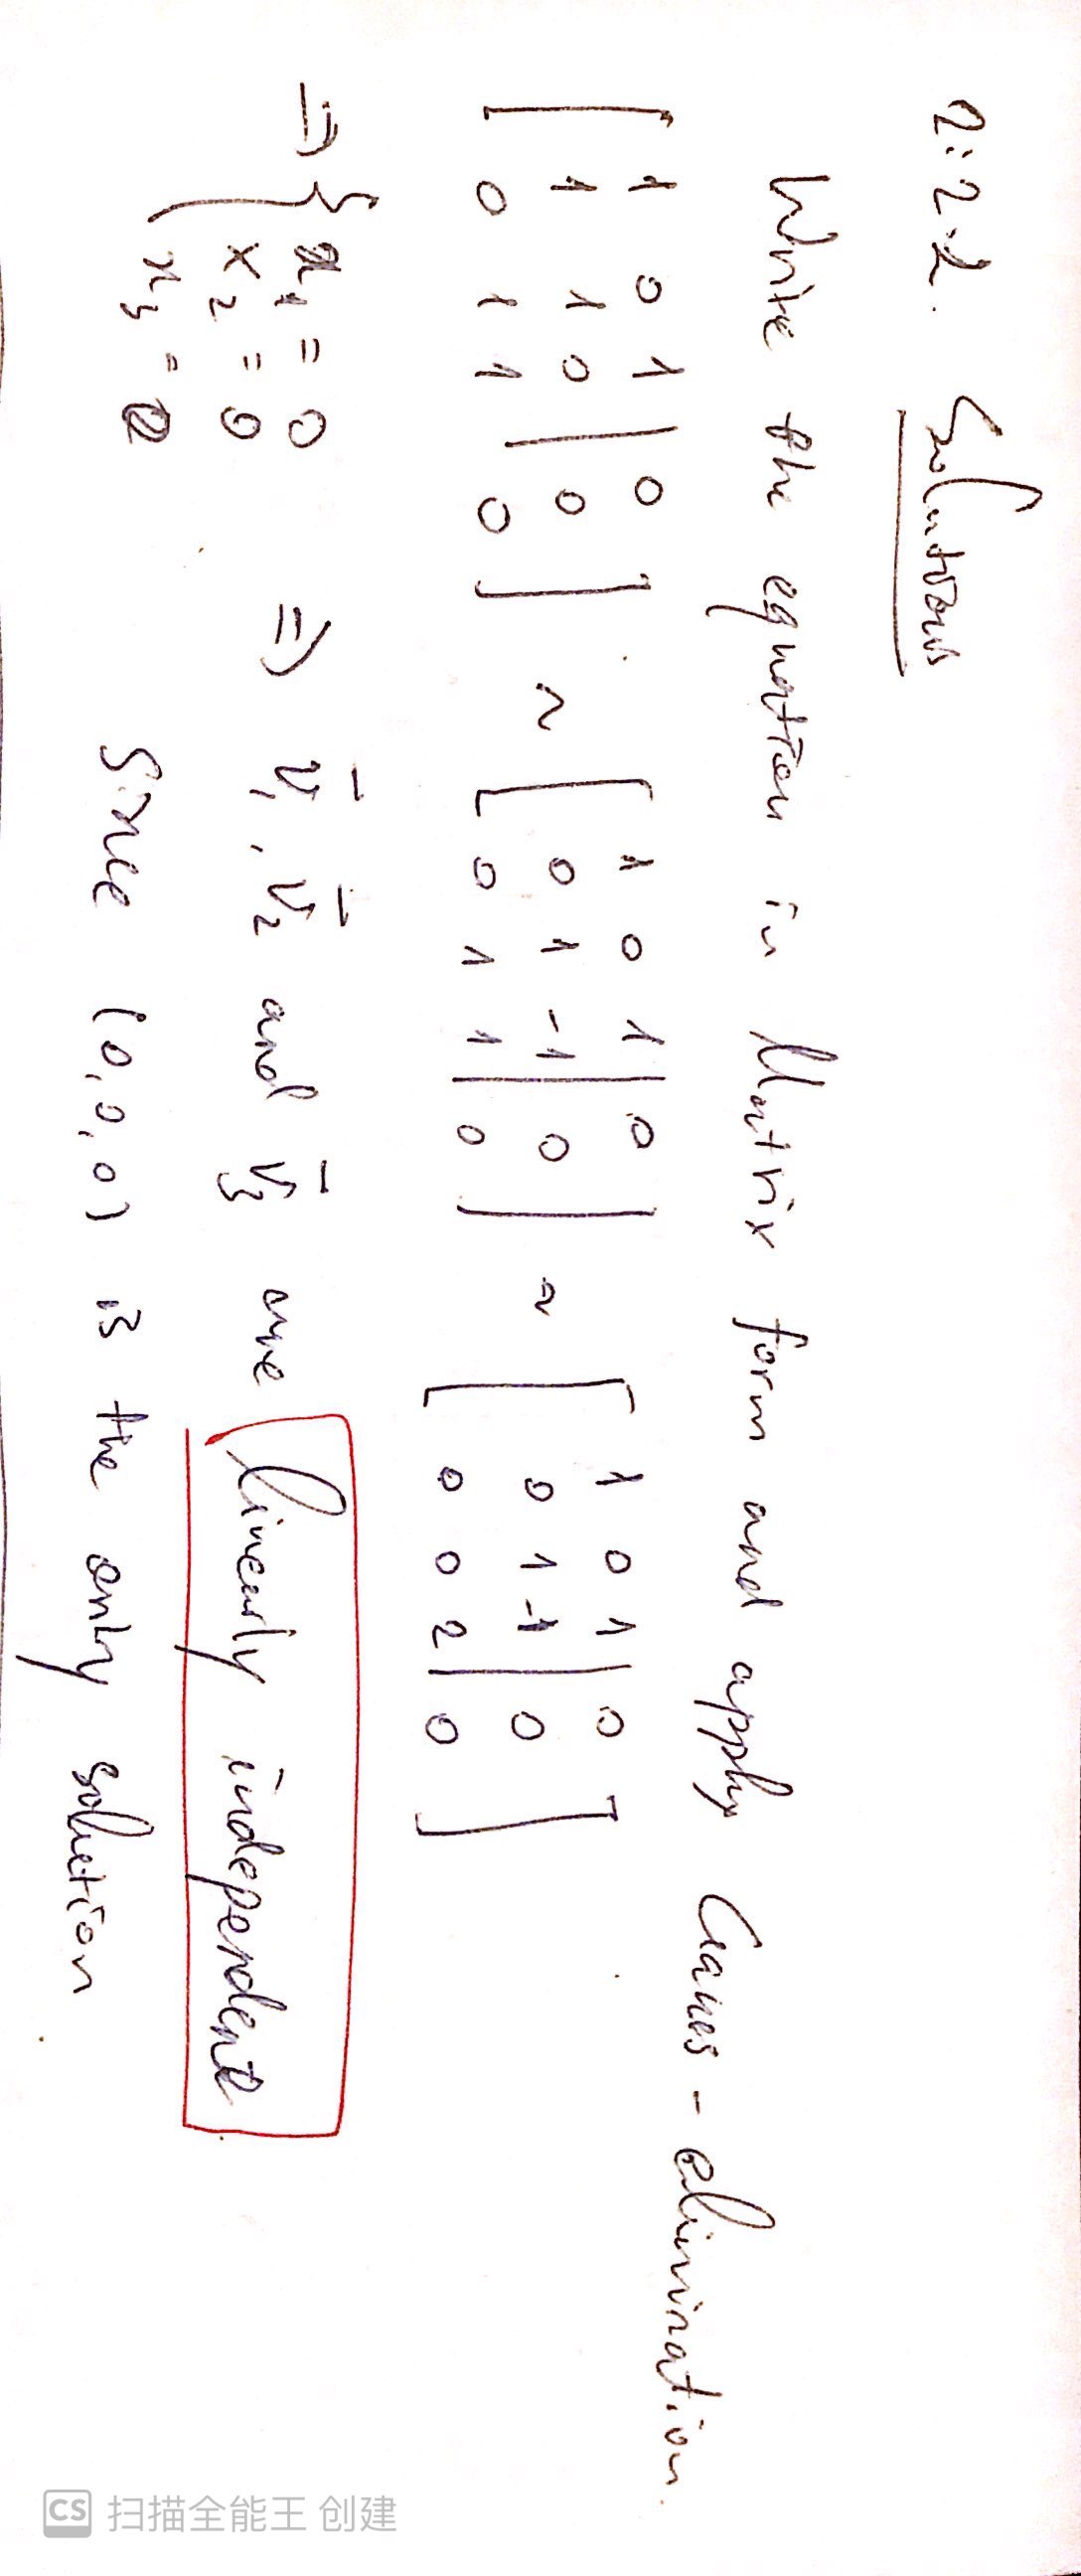 2.2.2. Solutions
Write the equation in Matrix form and apply Gauss-elimination.
[ 1 0 1 | 0 ] [ 1 0 1 | 0 ] [ 1 0 1 | 0 ]
[ 1 1 0 | 0 ] ~ [ 0 1 -1 | 0 ] ~ [ 0 1 -1 | 0 ]
[ 0 1 1 | 0 ] [ 0 1 1 | 0 ] [ 0 0 2 | 0 ]
=> { x₁ = 0
x₂ = 0 => v̄₁, v̄₂ and v̄₃ are linearly independent
x₃ = 0 Since (0,0,0) is the only solution
CS 扫描全能王 创建